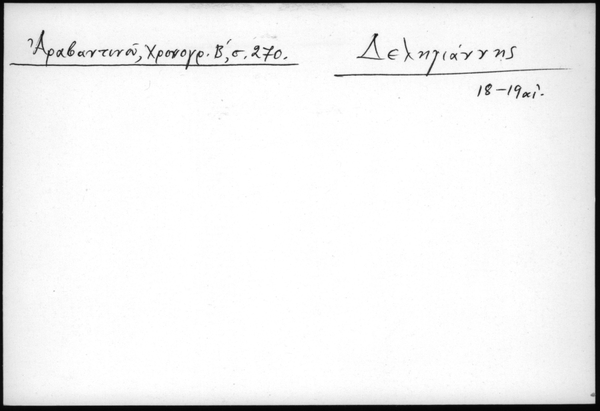 Ἀραβαντινοῦ, Χρονογρ. Β΄, σ. 270.
Δεληγιάννης
18-19 αἰ.